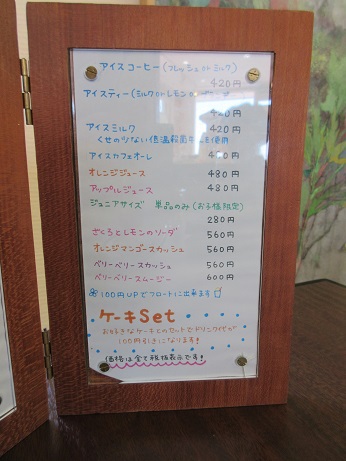 アイスコーヒー(フレッシュorミルク)
420円
アイスティー(ミルクorレモンor
420円
アイスミルク 420円
くせのない低温殺菌牛乳を使用
アイスカフェオーレ 円
オレンジジュース 480円
アップルジュース 480円
ジュニアサイズ 単品のみ(お子様限定)
280円
ざくろとレモンのソーダ 560円
オレンジマンゴースカッシュ 560円
ベリーベリースカッシュ 560円
ベリーベリースムージー 600円
100円UPでフロートに出来ます
ケーキSet
お好きなケーキとのセットでドリンクがぜんぶ
100円引きになります!
価格は全て税抜表示です!